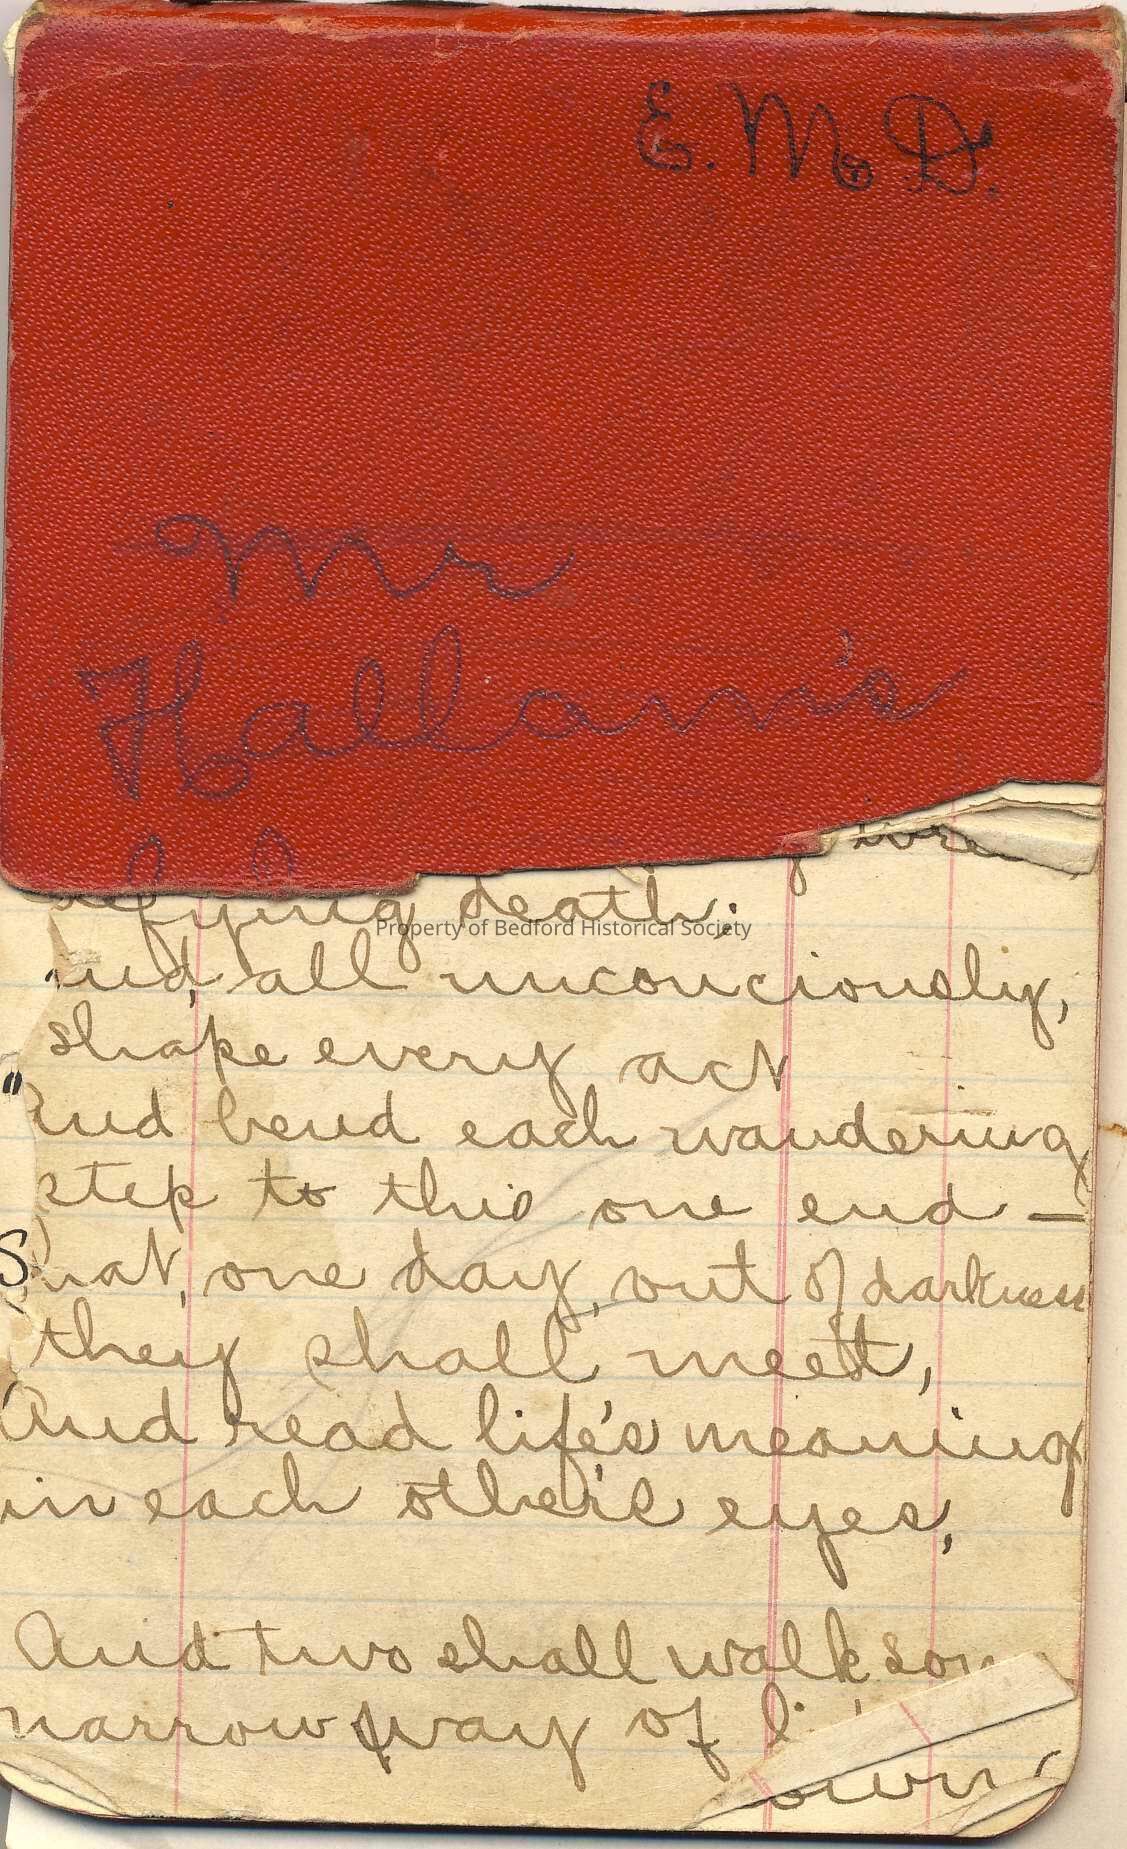 E. M. D.
Mr
Hallam's
defying death;
And, all unconciously,
shape every act
And bend each wandering
step to this one end —
That, one day, out of darkness
they shall meet,
And read life's meaning
in each other's eyes,
And two shall walk som
narrow way of li
own
Property of Bedford Historical Society